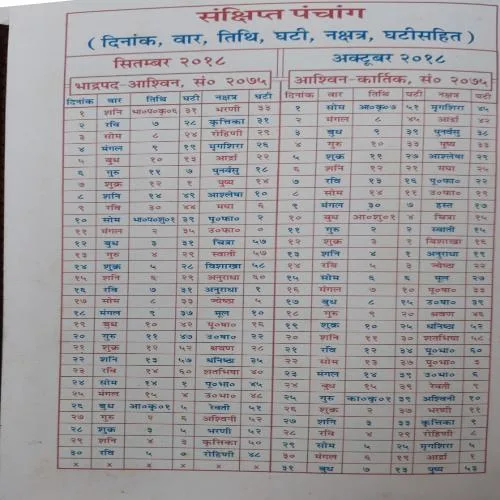 संक्षिप्त पंचांग
( दिनांक, वार, तिथि, घटी, नक्षत्र, घटीसहित )
सितम्बर २०१८ अक्टूबर २०१८
भाद्रपद-आश्विन, सं० २०७५ आश्विन-कार्तिक, सं० २०७५
दिनांक वार तिथि घटी नक्षत्र घटी दिनांक वार तिथि घटी नक्षत्र घटी
१ शनि भा०कृ०६ ३१ भरणी ३३ १ सोम आ०कृ०७ ५१ मृगशिरा ४५
२ रवि ७ २८ कृत्तिका ३१ २ मंगल ८ ४५ आर्द्रा ४२
३ सोम ८ २४ रोहिणी २९ ३ बुध ९ ३९ पुनर्वसु ३८
४ मंगल ९ १९ मृगशिरा २६ ४ गुरु १० ३३ पुष्य ३३
५ बुध १० १३ आर्द्रा २२ ५ शुक्र ११ २७ आश्लेषा २९
६ गुरु ११ ७ पुनर्वसु १८ ६ शनि १२ २१ मघा २५
७ शुक्र १२ १ पुष्य १४ ७ रवि १३ १६ पू०फा० २२
८ शनि १४ ४९ आश्लेषा १० ८ सोम १४ ११ उ०फा० १९
९ रवि ३० ४४ मघा ६ ९ मंगल ३० ७ हस्त १७
१० सोम भा०शु०१ ३९ पू०फा० २ १० बुध आ०शु०१ ४ चित्रा १५
११ मंगल २ ३५ उ०फा० ० ११ गुरु २ २ स्वाती १५
१२ बुध ३ ३१ चित्रा ५७ १२ शुक्र ३ १ विशाखा १६
१३ गुरु ४ २९ स्वाती ५७ १३ शनि ४ १ अनुराधा १९
१४ शुक्र ५ २८ विशाखा ५८ १४ रवि ५ ३ ज्येष्ठा २२
१५ शनि ६ २९ अनुराधा ६० १५ सोम ६ ६ मूल २७
१६ रवि ७ ३१ अनुराधा १ १६ मंगल ७ १० पू०षा० ३३
१७ सोम ८ ३३ ज्येष्ठा ५ १७ बुध ८ १५ उ०षा० ३९
१८ मंगल ९ ३७ मूल १० १८ गुरु ९ २० श्रवण ४६
१९ बुध १० ४२ पू०षा० १६ १९ शुक्र १० २५ धनिष्ठा ५२
२० गुरु ११ ४७ उ०षा० २२ २० शनि ११ ३० शतभिषा ५८
२१ शुक्र १२ ५२ श्रवण २८ २१ रवि १२ ३४ पू०भा० ६०
२२ शनि १३ ५७ धनिष्ठा ३५ २२ सोम १३ ३७ पू०भा० ३
२३ रवि १४ ६० शतभिषा ४० २३ मंगल १४ ३९ उ०भा० ६
२४ सोम १४ १ पू०भा० ४५ २४ बुध १५ ३९ रेवती ९
२५ मंगल १५ ४ उ०भा० ४८ २५ गुरु का०कृ०१ ३९ अश्विनी १०
२६ बुध आ०कृ०१ ५ रेवती ५१ २६ शुक्र २ ३७ भरणी ११
२७ गुरु २ ६ अश्विनी ५२ २७ शनि ३ ३३ कृत्तिका ९
२८ शुक्र ३ ५ भरणी ५२ २८ रवि ४ २९ रोहिणी ८
२९ शनि ४ ३ कृत्तिका ५० २९ सोम ५ २५ मृगशिरा ५
३० रवि ५ ० रोहिणी ४८ ३० मंगल ६ १९ आर्द्रा १
× × × × × × ३१ बुध ७ १३ पुष्य ५३